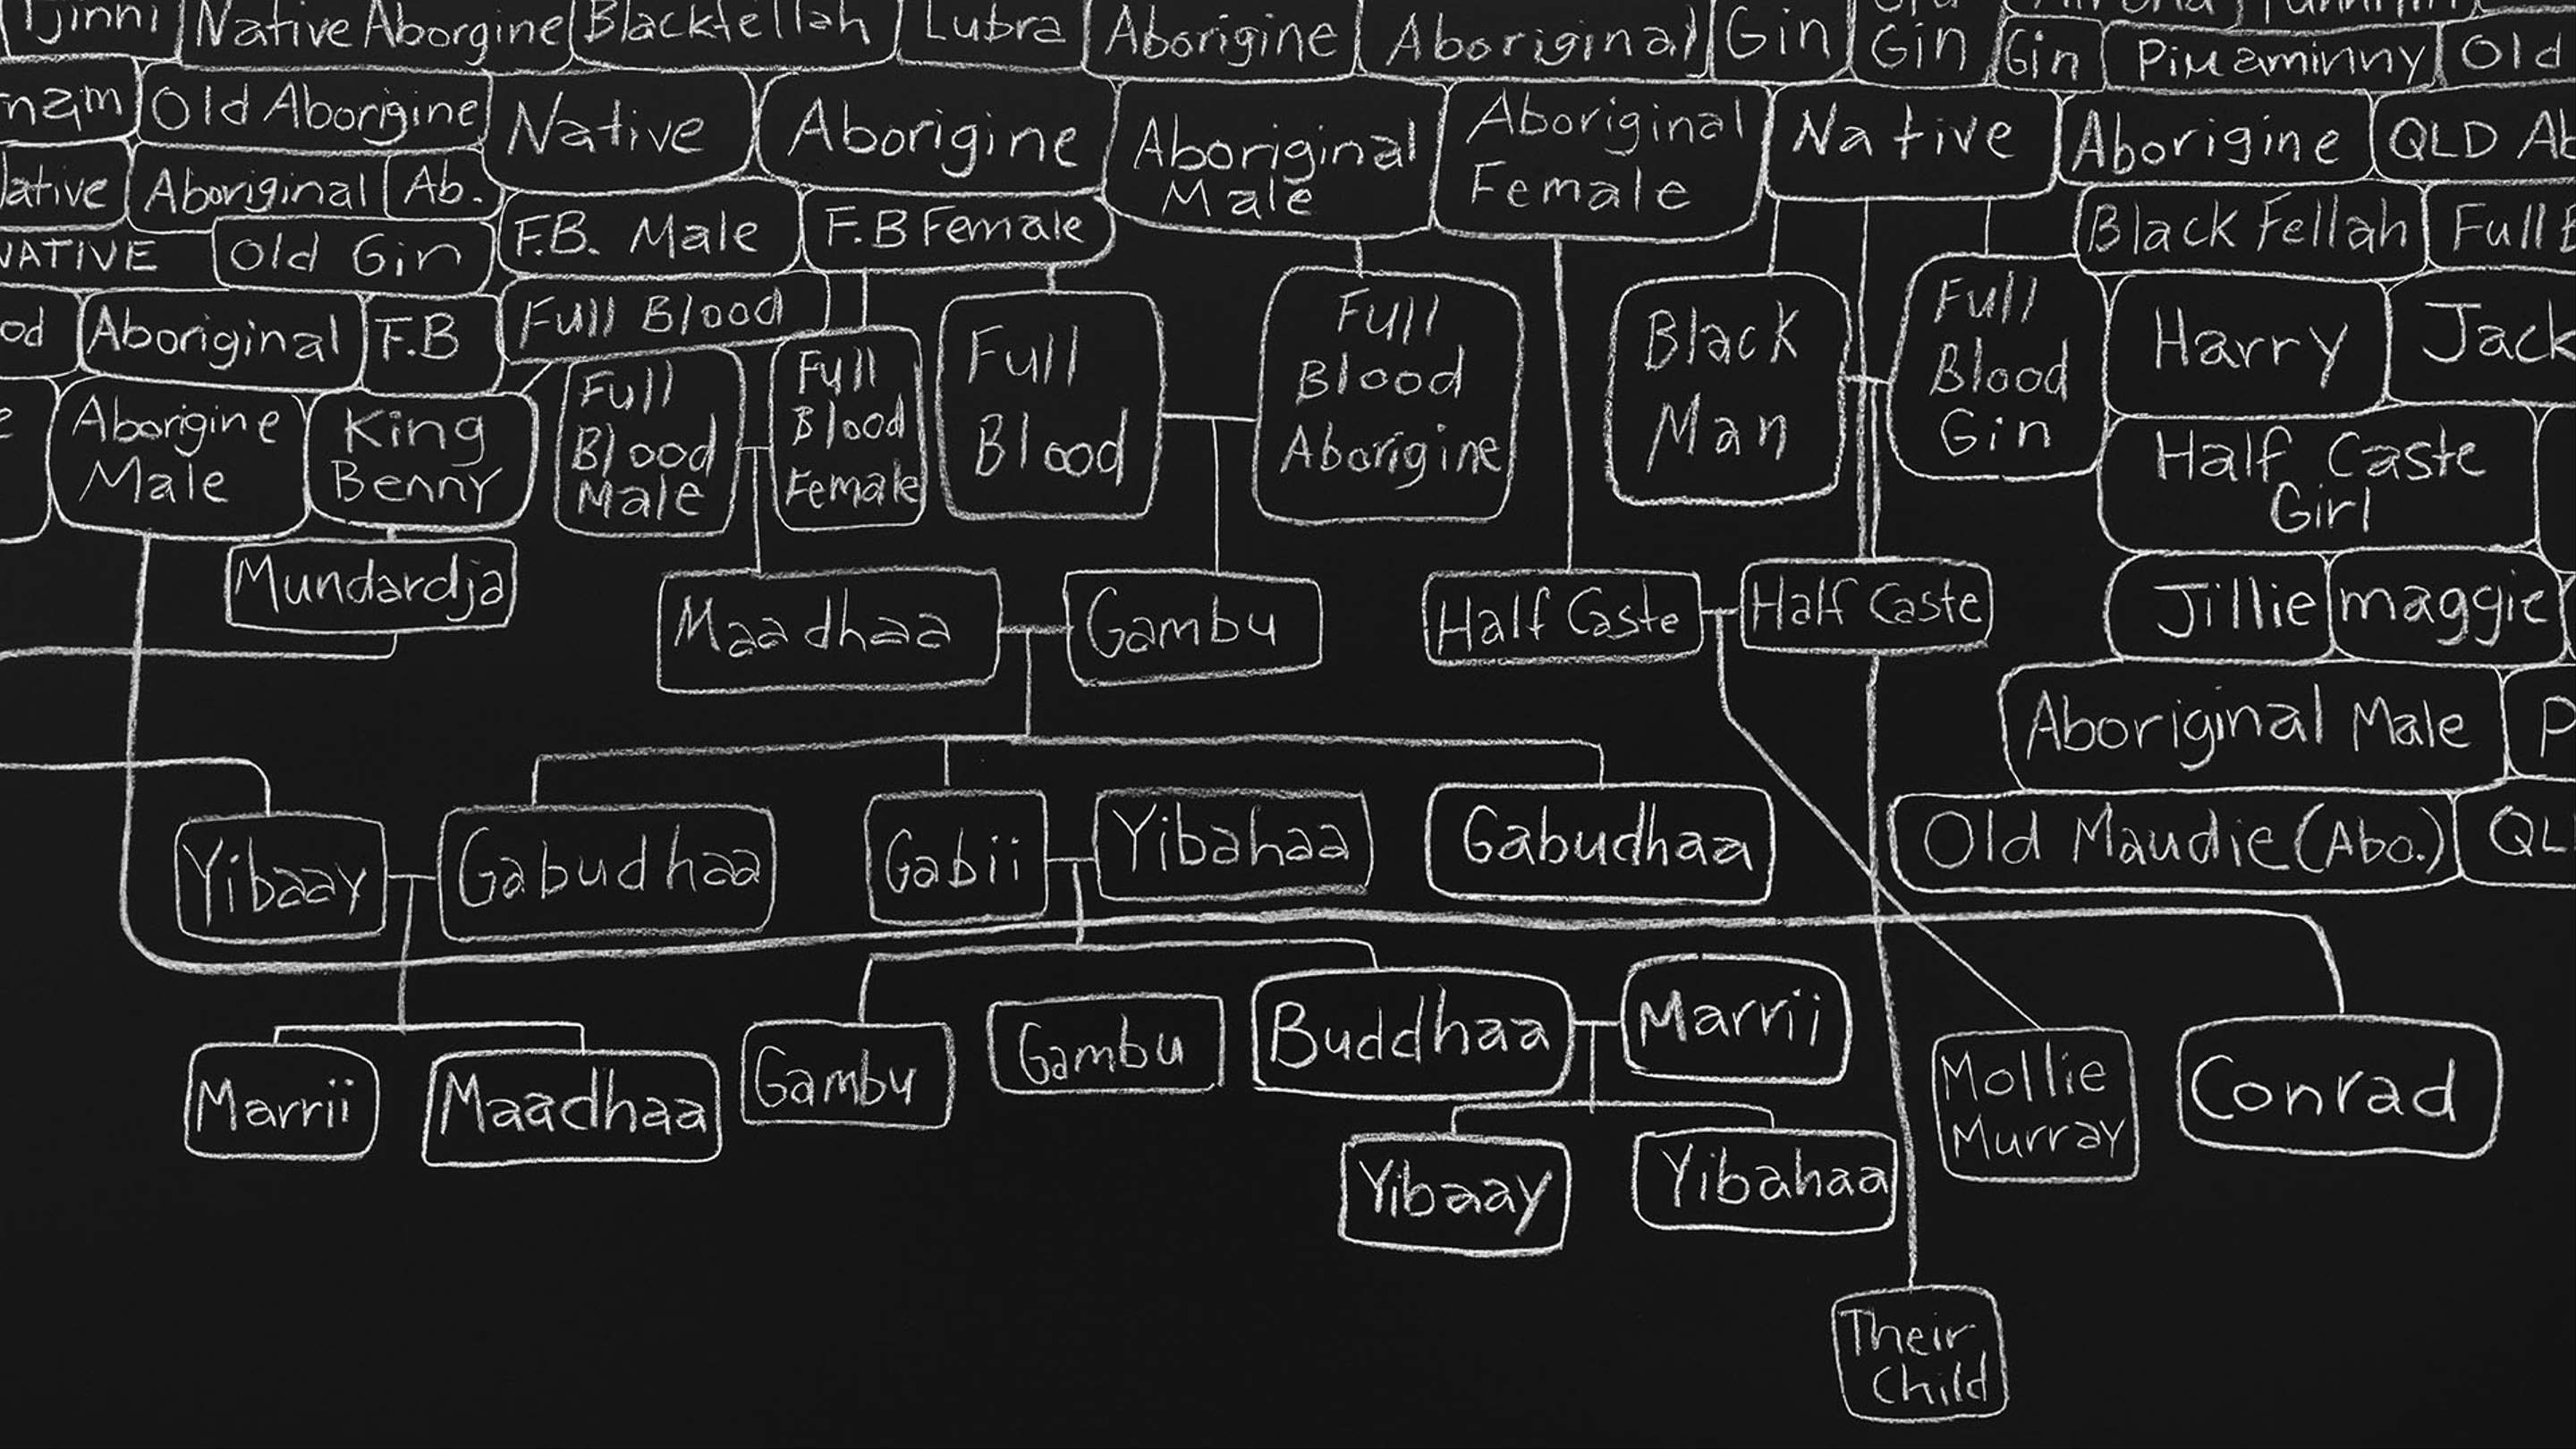 Tjinni
Native Aborgine
Blackfellah
Lubra
Aborigine
Aboriginal
Gin
Gin
Gin
Piuaminny
Old
Old Aborigine
Native
Aborigine
Aboriginal
Male
Aboriginal
Female
Native
Aborigine
QLD Ab
Native
Aboriginal
Ab.
F.B. Male
F.B Female
Black Fellah
Full B
NATIVE
Old Gin
Aboriginal
F.B
Full Blood
Full
Blood
Male
Full
Blood
Female
Full
Blood
Full
Blood
Aborigine
Black
Man
Full
Blood
Gin
Harry
Jack
Aborigine
Male
King
Benny
Half Caste
Girl
Mundardja
Maadhaa
Gambu
Half Caste
Half Caste
Jillie
maggie
Aboriginal Male
Yibaay
Gabudhaa
Gabii
Yibahaa
Gabudhaa
Old Maudie (Abo.)
QL
Marrii
Maadhaa
Gambu
Gambu
Buddhaa
Marrii
Mollie
Murray
Conrad
Yibaay
Yibahaa
Their
Child